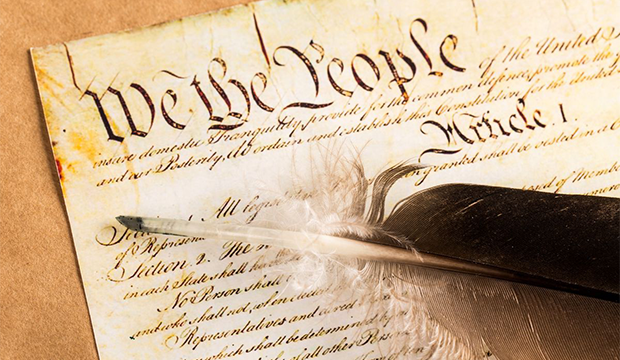 We the People of the United S
insure domestic Tranquility, provide for the common defence, promote the
and our Posterity, do ordain and establish this Constitution for the United
Article 1.
granted shall be vested in a C
Section 1. All legisl
of Represen
Section. 2. The
in each State shall
No Person shall
and who shall not, when elected
Representatives and
which shall be determined by
all other Person